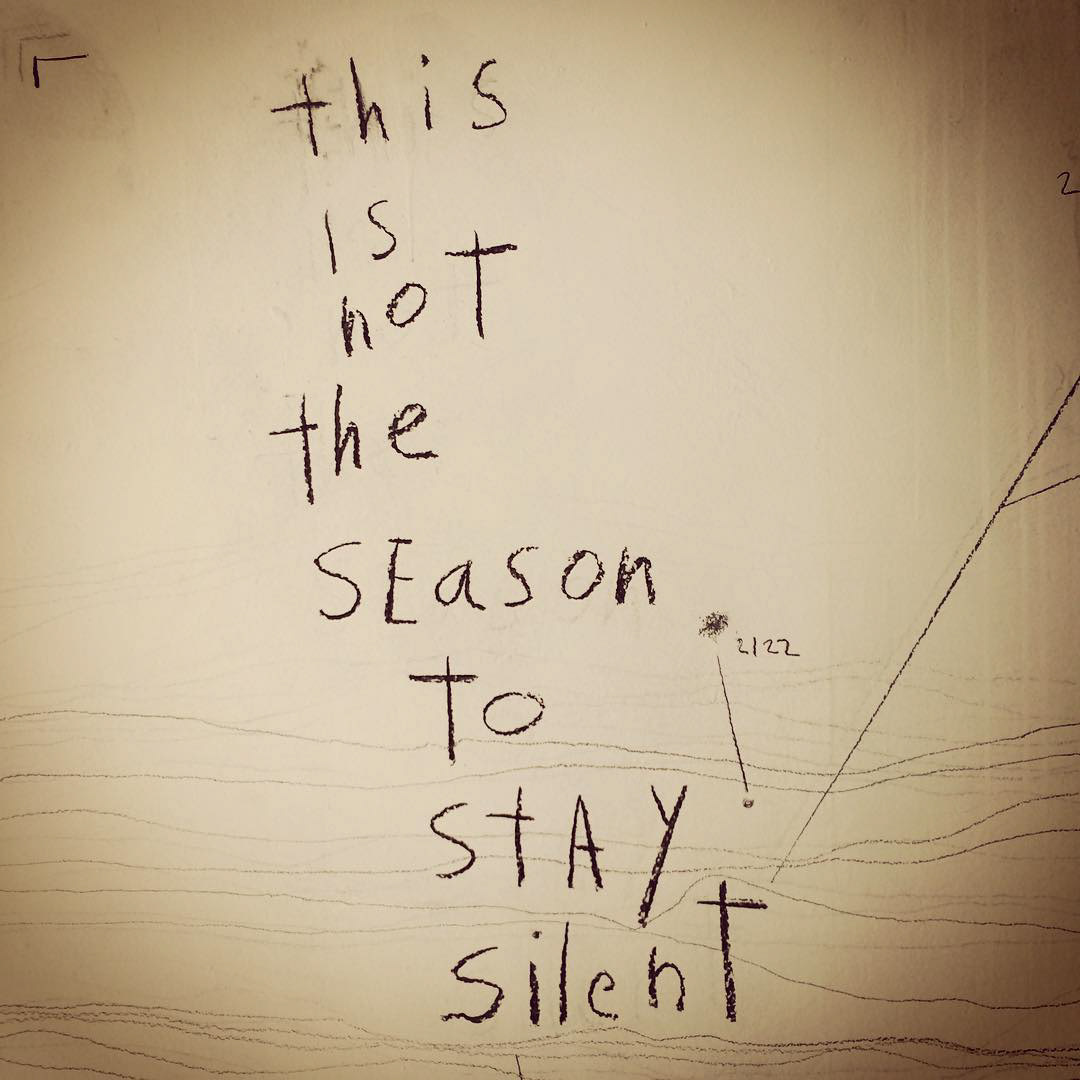 this
is
noT
the
SEason
2122
To
STAy
SilenT
2